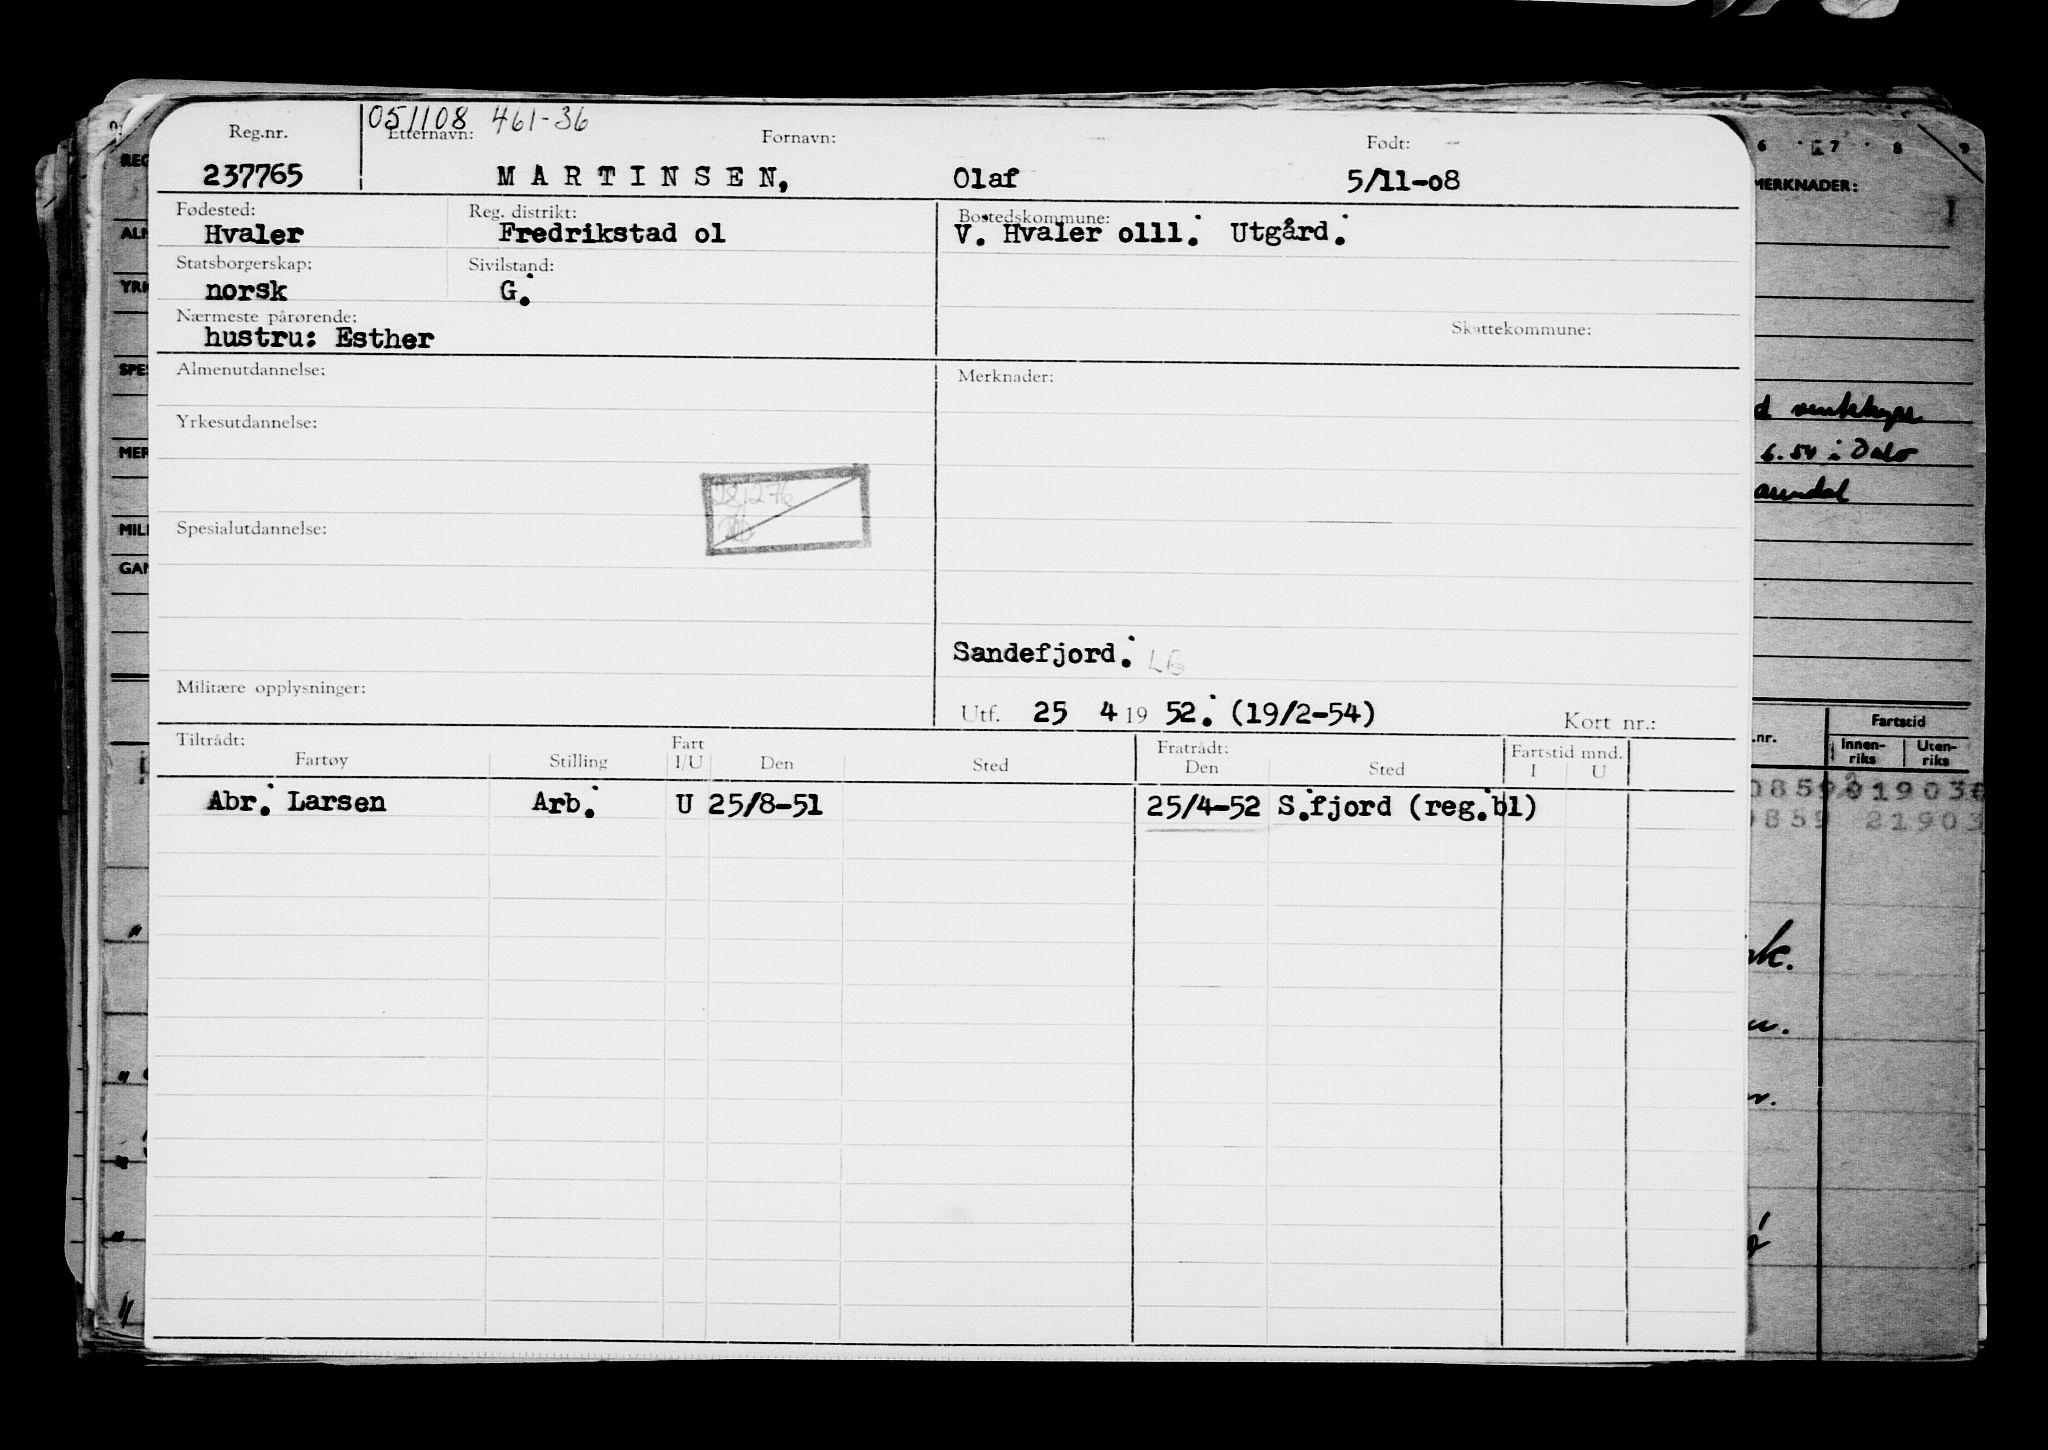 051108 461-36
Reg.nr. Etternavn: Fornavn: Født:
237765 MARTINSEN, Olaf 5/11-08
Fødested: Reg. distrikt: Bostedskommune:
Hvaler Fredrikstad ol V. Hvaler olll. Utgård.
Statsborgerskap: Sivilstand:
norsk G.
Nærmeste pårørende: Skattekommune:
hustru: Esther
Almenutdannelse: Merknader:
Yrkesutdannelse:
Spesialutdannelse:
Sandefjord.
Militære opplysninger:
Utf. 25 4 19 52. (19/2-54) Kort nr.:
Tiltrådt: Fart Fratrådt: Fartstid mnd.
Fartøy Stilling I/U Den Sted Den Sted I U
Abr. Larsen Arb. U 25/8-51 25/4-52 S.fjord (reg.bl)
6 7 8 9
MERKNADER:
6.54 i
.nr. Fartstid
Innen-riks Uten-riks